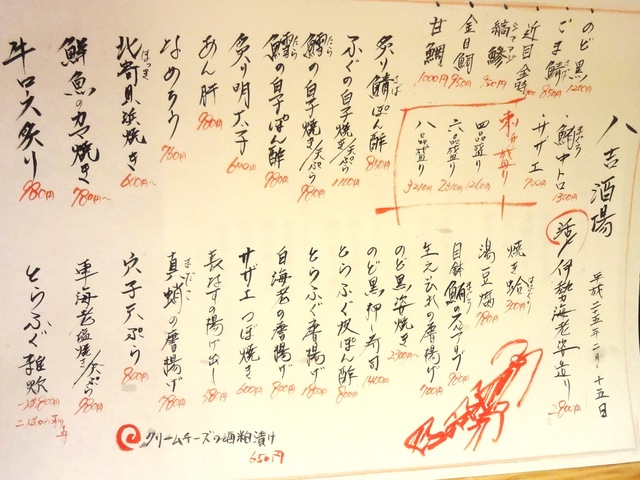 八吉酒場
平成二五年二月十五日
のど黒 1200円
ごま鯖 850円
近目金時
縞鯵 950円
シマアジ
金目鯛 950円
甘鯛 1000円
・鮪中トロ 1300円
・サザエ 700円
刺身盛り
四品盛り 1260円
六品盛り 2310円
八品盛り 3210円
活 伊勢海老姿造り 2800円
炙り鯖ぽん酢 850円
ふぐの白子焼き/天ぷら 1100円
鱈の白子焼き/天ぷら 980円
鱈の白子ぽん酢 980円
炙り明太子 640円
あん肝 980円
なめろう 760円
北寄貝浜焼き 600円〜
ほっき
鮮魚のカマ焼き 780円〜
牛ロス炙り 980円
焼き蛤 300円
はまぐり
湯豆腐 780円
目鉢鮪のステーキ 960円
生えびれの唐揚げ 700円
のど黒姿焼き 2300円〜
のど黒押し寿司 1400円
とらふぐ皮ぽん酢 800円
とらふぐ唐揚げ 1800円
白海老の唐揚げ 800円
サザエつぼ焼き 600円
長なすの揚げ出し 580円
真蛸の唐揚げ 780円
まだこ
穴子天ぷら 800円
車海老塩焼き/天ぷら 980円
とらふぐ雑炊
クリームチーズの酒粕漬け
650円